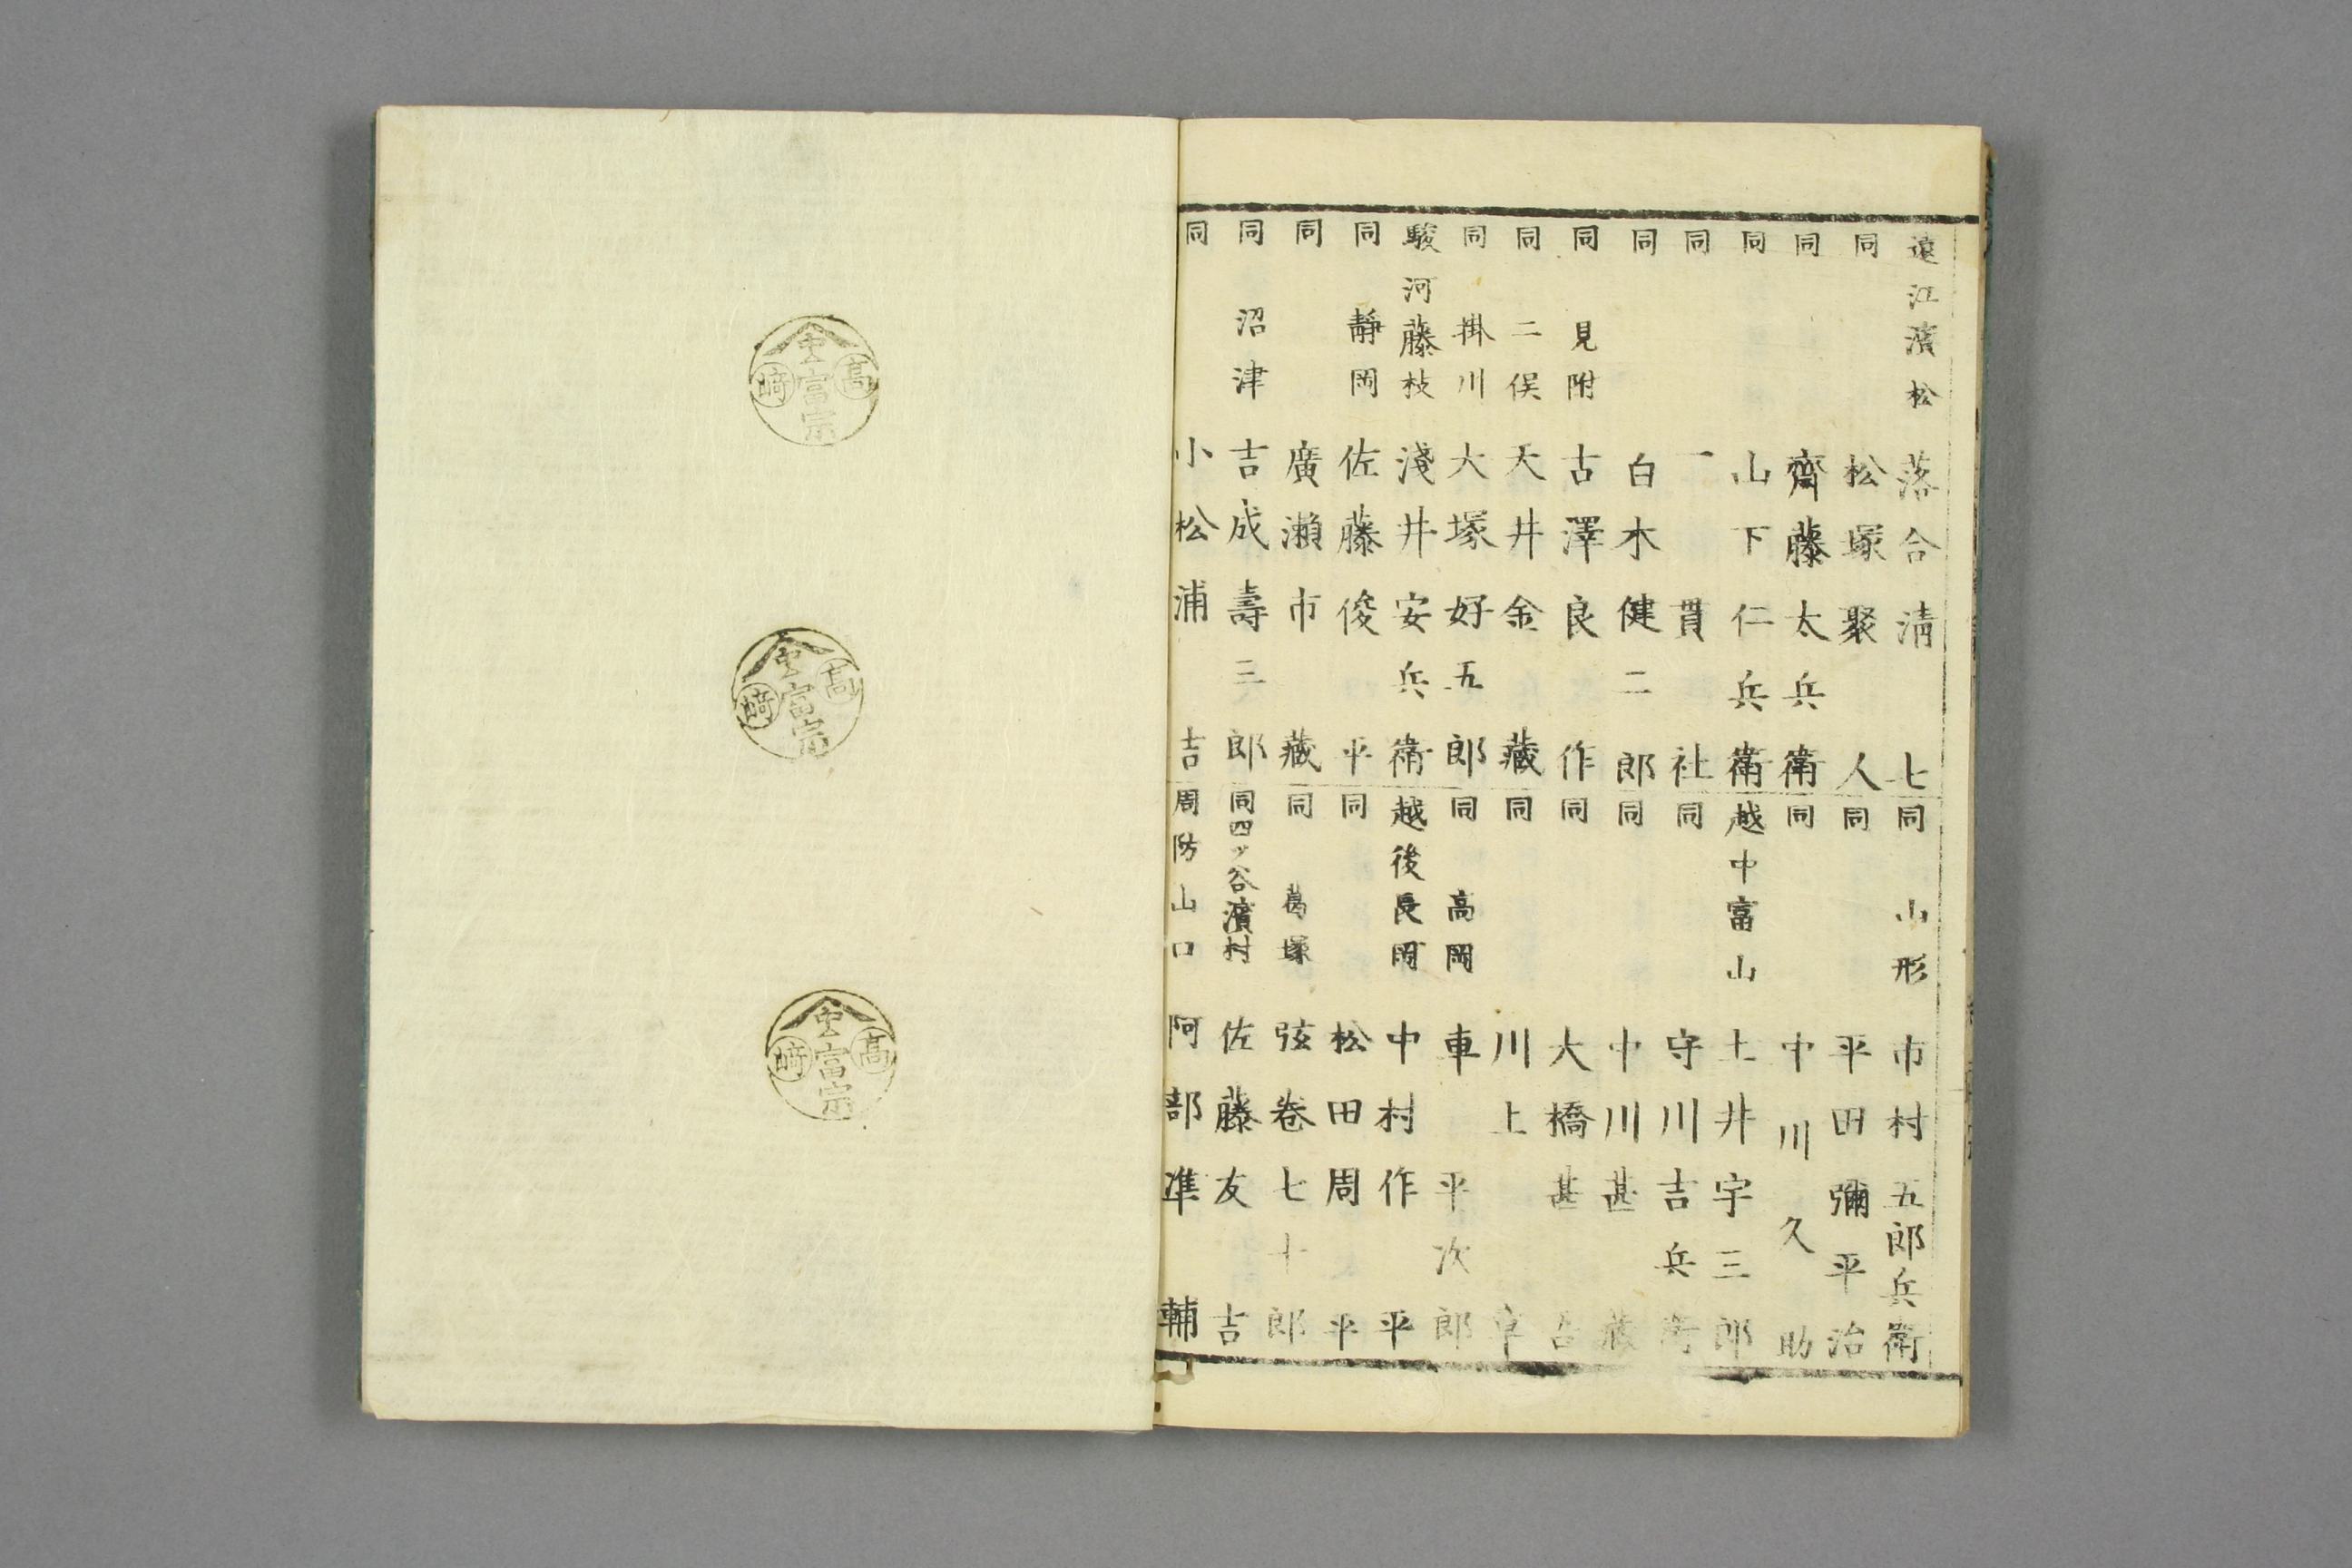 遠江濱松 落合清七
同 松塚聚人
同 齊藤太兵衛
同 山下仁兵衛
同 一貫社
同 白木健二郎
同 見附 古澤良作
同 二俣 天井金藏
同 掛川 大塚好五郎
駿河藤枝 淺井安兵衛
同 靜岡 佐藤俊平
同 廣瀬市藏
同 沼津 吉成壽三郎
同 小松浦吉
同 山形 市村五郎兵衛
同 平田彌平治
同 中川久助
越中富山 土井宇三郎
同 守川吉兵衛
同 中川甚藏
同 大橋甚
同 川上
同 高岡 車平次郎
越後長岡 中村作平
同 松田周平
同 葛塚 弦卷七十郎
同四ッ谷濱村 佐藤友吉
周防山口 阿部準輔
高
富宗
﨑
高
富宗
﨑
高
富宗
﨑